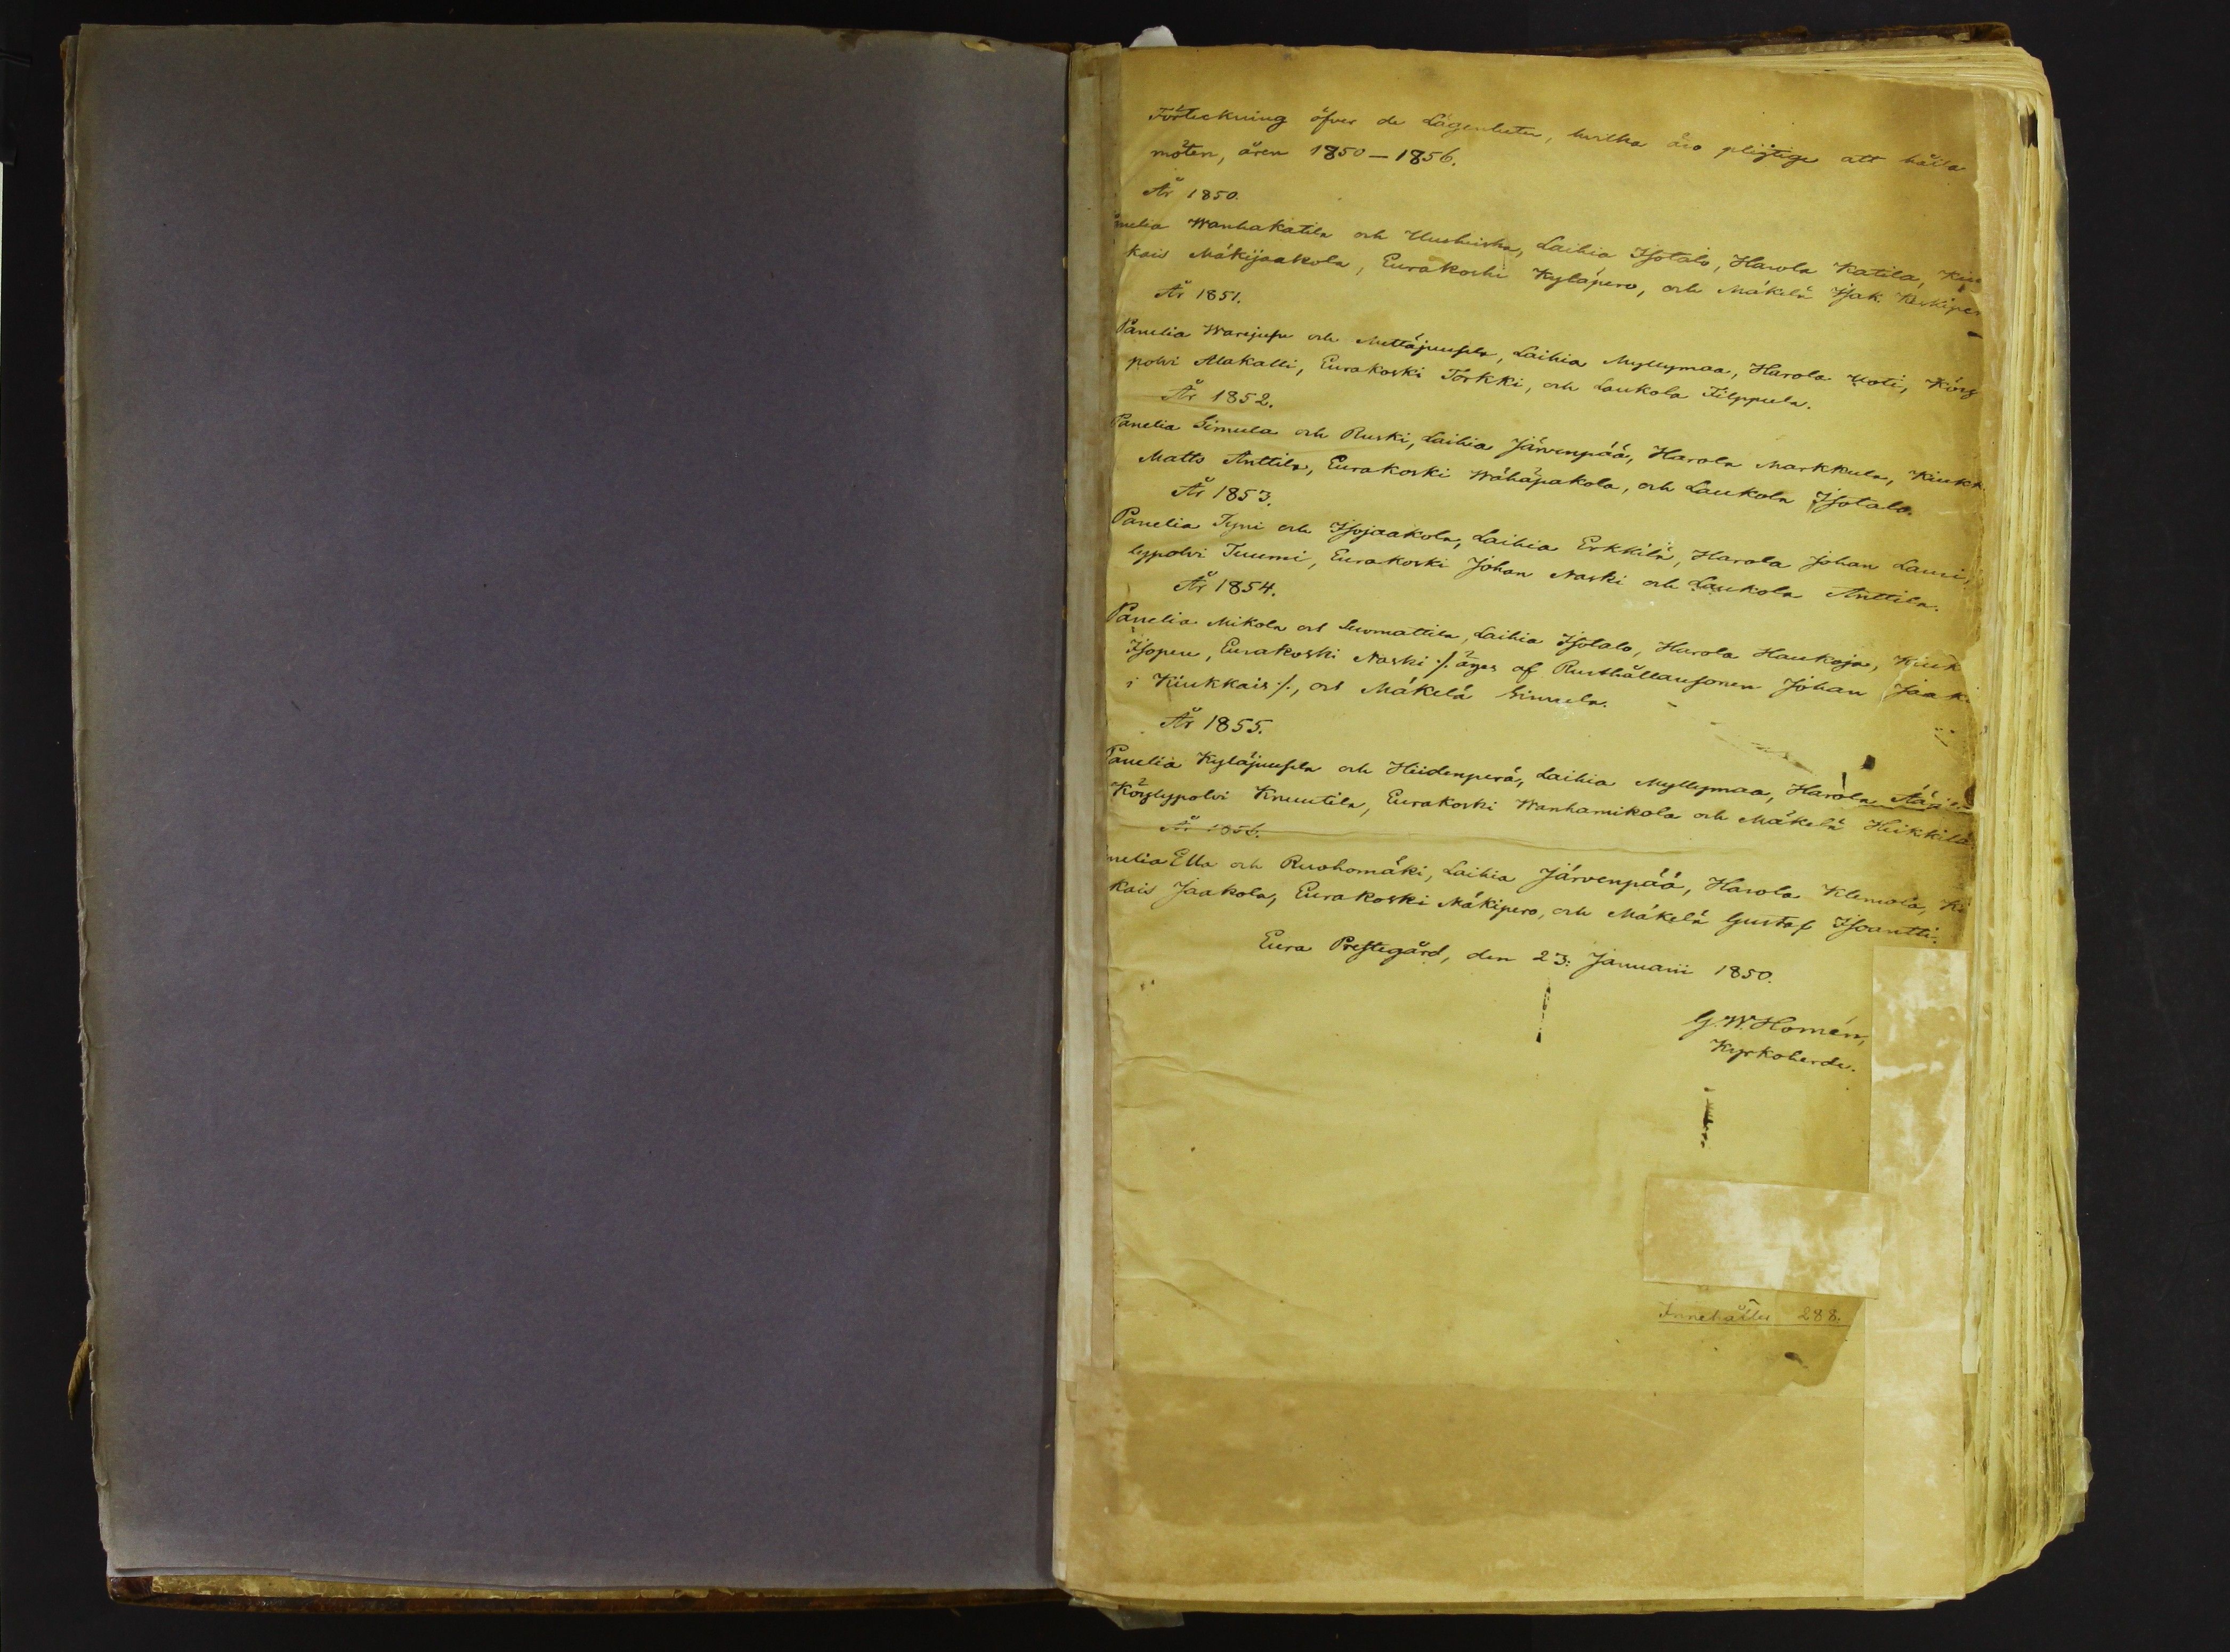 Förteckning öfver de Lägenheter, hvilka äro pligtige att hålla
möten, åren 1850–1856.
År 1850.
nelia Wanhakatila och Uusheiska, Laihia Isotalo, Harola Katila, Kiu
kais Mäkijaakola, Eurakoski Kyläpero, och Mäkelä Isak Keskipe
År 1851.
Panelia Warejusu och Mattäjuusela, Laihia Myllymaa, Harola Uoti, Köyl
polvi Alakalli, Eurakoski Törkki, och Laukola Filppula.
År 1852.
Panelia Simula och Ruski, Laihia Järvenpää, Harola Markkula, Kiukk
Matts Anttila, Eurakoski Wähäpakola, och Laukola Isotalo.
År 1853.
Panelia Tyni och Isojaakola, Laihia Erkkilä, Harola Johan Lauri,
lypolvi Tuumi, Eurakoski Johan Naski och Laukola Anttila.
År 1854.
Panelia Mikola och Suomattila, Laihia Isotalo, Harola Haukoja, Kiuk
Isoperu, Eurakoski Naski ./. äges af Rusthållaresonen Johan Jaak
i Kiukkais ./., och Mäkelä Simula.
År 1855.
Panelia Kyläjuusela och Hiidenperä, Laihia Myllymaa, Harola
Köylypolvi Knuutila, Eurakoski Wanhamikola och Mäkelä Heikkilä
År 1856.
nelia Ella och Ruohomäki, Laihia Järvenpää, Harola Klemola, Ki
kais Jaakola, Eurakoski Mäkipero, och Mäkelä Gustaf Isoantti.
Eura Prestegård, den 23: Januarii 1850.
G. W. Homén,
Kyrkoherde.
Innehåller 288.